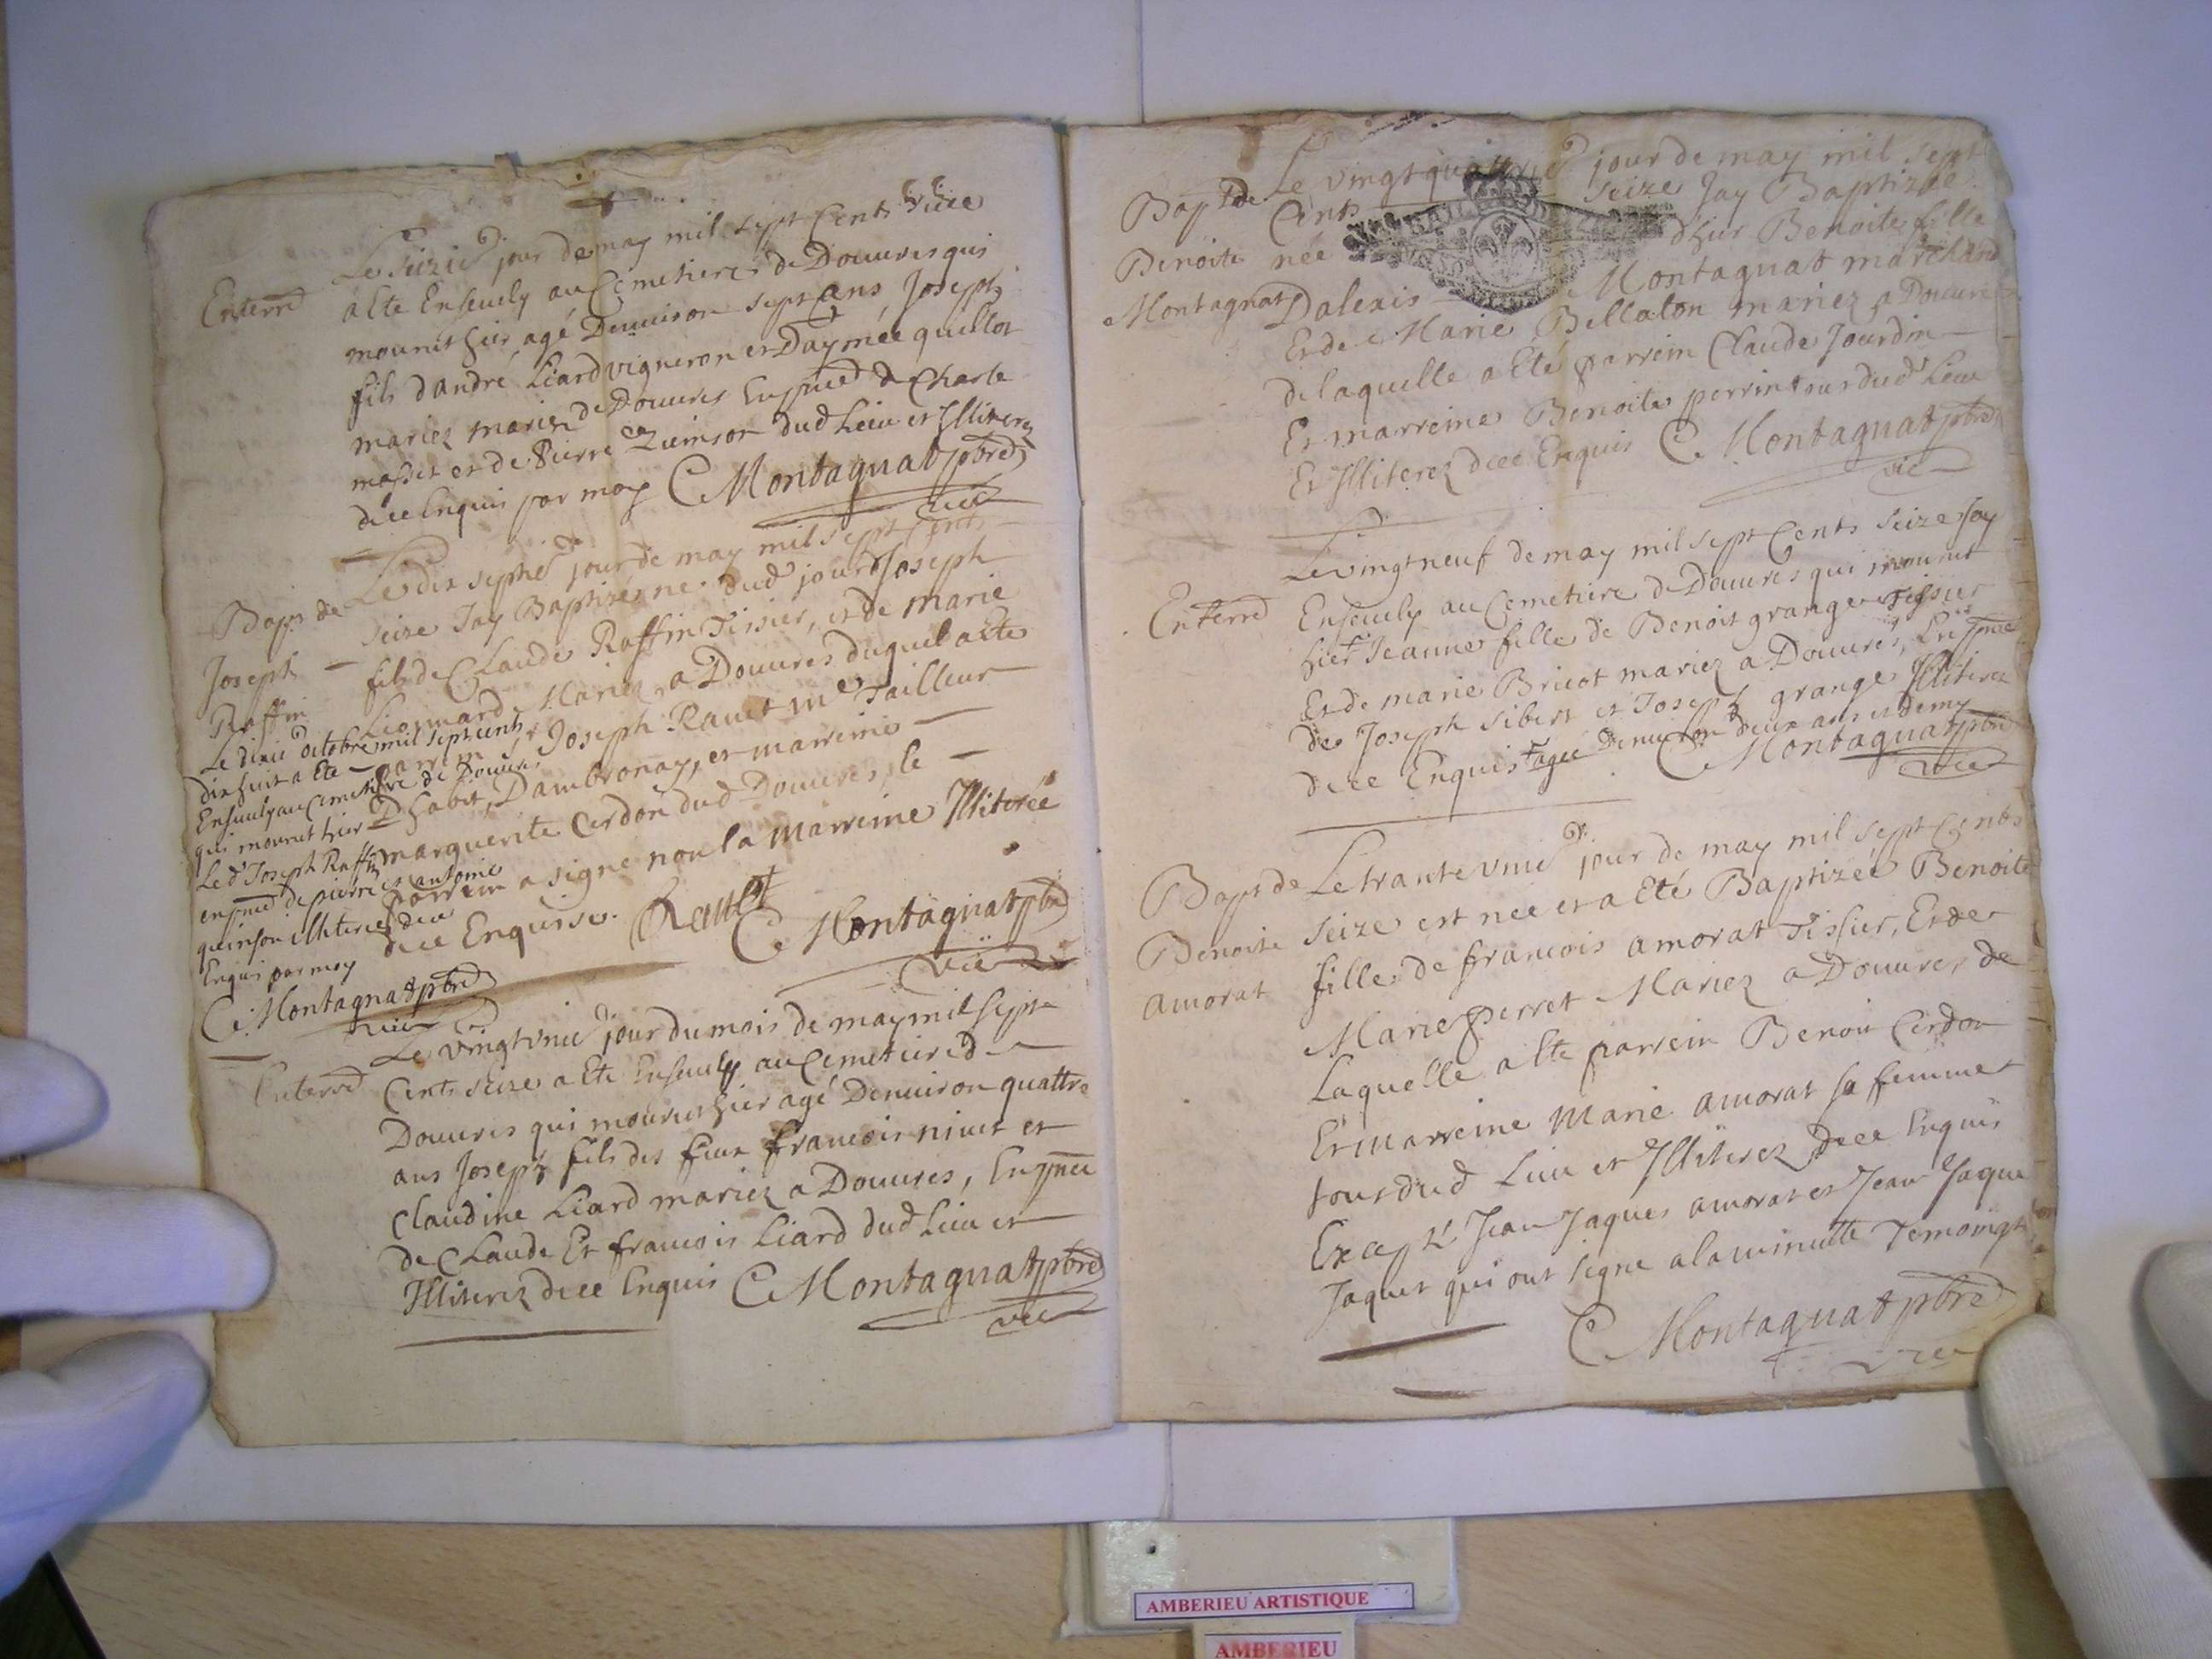 Le seizie jour de may mil sept cents seize
Enterrd a Ete Ensevely au Cemetiere de Douures qui
mourut hier agé Denuiron sept ans Joseph
fils d'andré Liard vigneron et Daymée quillot
mariez mariez de Douures En pnce de Charle
masset et de Pierre Quinson dud Lieu et Illiterez
de ce Enquis par moy C Montagnat pbre
vic
Le dix septie jour de may mil sept Cents
Bapt de seize Jay Baptizé ne dud jour Joseph
Joseph fils de Claude Raffin Tissier, et de marie
Raffin Liermard Mariez a Douures duquel a ete
parrin Sr Joseph Rauet me Tailleur
Dhabit, Dambronay, et marreine
marguerite Cerdon dud Douures, le
parrein a signe non la marreine Illiterée
de ce Enquise. Rauet
C Montagnat pbre
vic
Le dixie octobre mil sept cents
dix huit a Ete
Enseuely au Cemetiere de Douures
qui mourut hier
Led Joseph Raffin
en pnce de pierre et antoine
quinson illiterez de ce
Enquis par moy
C Montagnat pbre
vic
Le vingt unie jour du mois de may mil sept
Enterrd Cents seize a Ete Enseuely au Cemetiere de
Douures qui mourut hier agé Denuiron quattre
ans Joseph fils des feux francois niuet et
Claudine Liard mariez a Douures, En pnce
de Claude Et francois Liard dud Lieu et
Illiterez de ce Enquis C Montagnat pbre
vic
Le vingt quattrie jour de may mil sept
Bapt de Cents seize Jay Baptizée
Benoite née dhier Benoite fille
Montagnat Dalexis Montagnat marchand
Et de Marie Bellaton mariez a Douures
de laquelle a Eté parrein Claude Jourdin
Et marreine Benoite perrin tous dud Lieu
Et Illiterez de ce Enquis C Montagnat pbre
vic
Le vingt neuf de may mil sept Cents seize Jay
Enterrd Enseuely au Cemetiere de Douures qui mourut
hier Jeanne fille de Benoit grange Tissier
Et de marie Bricot mariez a Douures, En pnce
de Joseph Sibert et Joseph grange Illiterez
de ce Enquis agée Denuiron deux ans et demy
C Montagnat pbre
vic
Bapt de Le trante unie jour de may mil sept Cents
Benoite seize est nee et a Eté Baptizée Benoite
amorat fille de francois amorat Tissier, Et de
Marie perret Mariez a Douures de
Laquelle a Ete parrein Benoit Cerdon
Et marreine Marie amorat sa femme
tous dud Lieu et Illiterez de ce Enquis
Excepté Jean Jaques amorat et Jean Jaque
Jaquet qui ont signe a la minutte Temoings
C Montagnat pbre
vic
AMBERIEU ARTISTIQUE
AMBERIEU